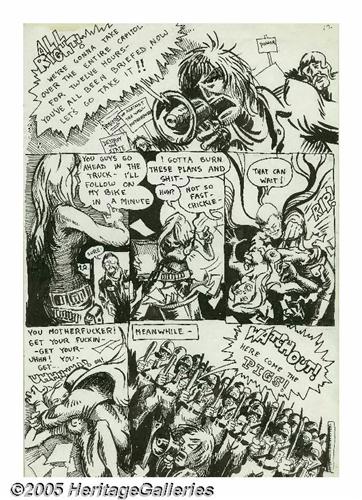 ALL
RIGHT!
WE'RE GONNA TAKE
OVER THE ENTIRE CAPITOL
FOR TWELVE HOURS-
YOU'VE ALL BEEN BRIEFED NOW
LET'S GO TAKE IT!!
POWER
STATE
YOU GUYS GO
AHEAD IN THE
TRUCK - I'LL
FOLLOW ON
MY BIKE
IN A MINUTE
SURE!
I GOTTA BURN
THESE PLANS AND
SHIT-
HUH?
NOT SO
FAST-
CHICKIE-
THAT CAN
WAIT!
RIP!
YOU MOTHERFUCKER!
GET YOUR FUCKIN-
-GET YOUR-
UHHN! YOU-
GET-
MEANWHILE -
WATCH OUT!
HERE COME THE
PIGS!
©2005 HeritageGalleries